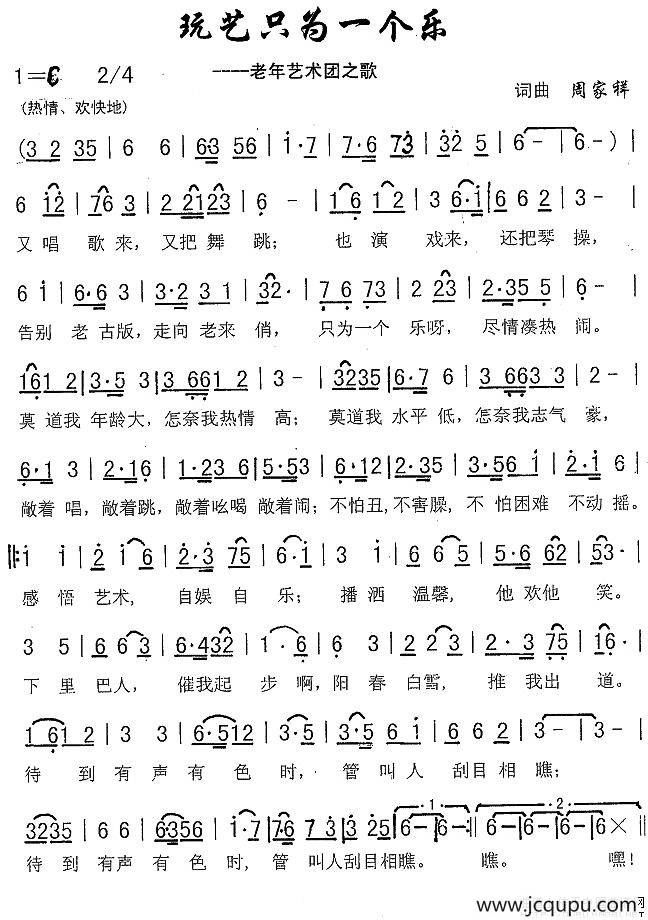 玩艺只为一个乐
1=C 2/4 ----老年艺术团之歌
(热情、欢快地) 词曲 周家祥
(3 2 35 | 6 6 | 63 56 | i·7 | 7·6 73 | 32 5 | 6 - | 6 - ) |
6 i2 | 76 3 | 2 2123 | 6 - | 16 12 | 3 6·i | 6 62 | 3 - |
又唱 歌来, 又把舞 跳; 也演 戏来, 还把琴 操,
6 i | 6·6 3 | 3·2 3 1 | 32· | 7 6 73 | 2 23 | 2·35 65 | 6 - |
告别 老古版, 走向 老来 俏, 只为一个 乐呀, 尽情凑热 闹。
161 2 | 3·5 3 | 3 661 2 | 3 - | 3235 | 6·7 6 | 3 663 | 6 - |
莫道我 年龄大, 怎奈我热情 高; 莫道我 水平 低, 怎奈我志气 豪,
6·1 3 | 2·16 | 3·235 | 5·53 | 6·12 | 2·35 | 3·56 i | 2·i 6 |
敞着 唱, 敞着跳, 敞着吆喝 敞着闹; 不怕丑, 不害臊, 不 怕困难 不动 摇。
‖: i i | 2 i 6 | 2·3 75 | 6·i | 3 i | 6 65 | 5·6 62 | 53· |
感 悟 艺术, 自娱 自 乐; 播 洒 温馨, 他 欢他 笑。
3 5 | 6 63 | 6·432 | 1·6 | 6 3 | 2 23 | 2·3 75 | 16· |
下 里 巴人, 催我起 步啊, 阳 春 白雪, 推 我出 道。
1 61 2 | 3 3 | 6·535 | 3·2 | 3·5 | 6 i | 6·62 | 3 - |
待 到 有 声 有 色 时, 管 叫人 刮目相 瞧;
3235 | 6 6 | 6356 | i·7 | 76 7 3 | 3 25 | 6 - | 6 - :‖ 6 - | 6 - | 6 - | 6 × ‖
待 到 有声 有 色 时, 管 叫人刮目相瞧。 瞧。 嘿!
www.jcqupu.com